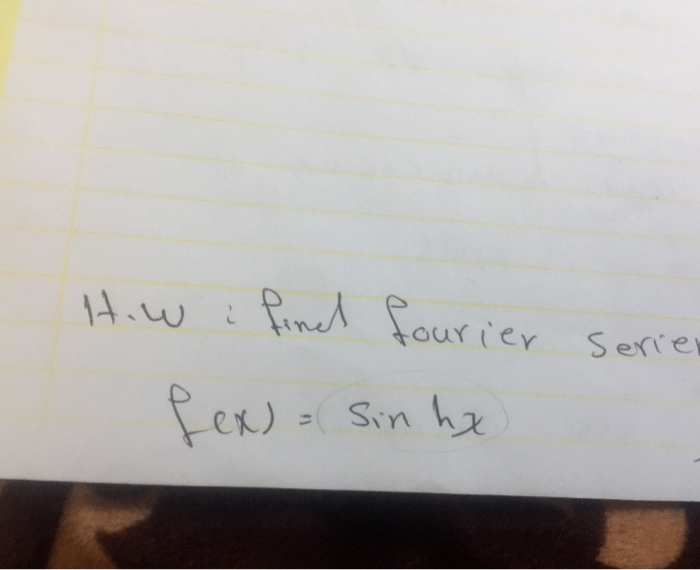 H.W : find fourier series
f(x) = sin hx